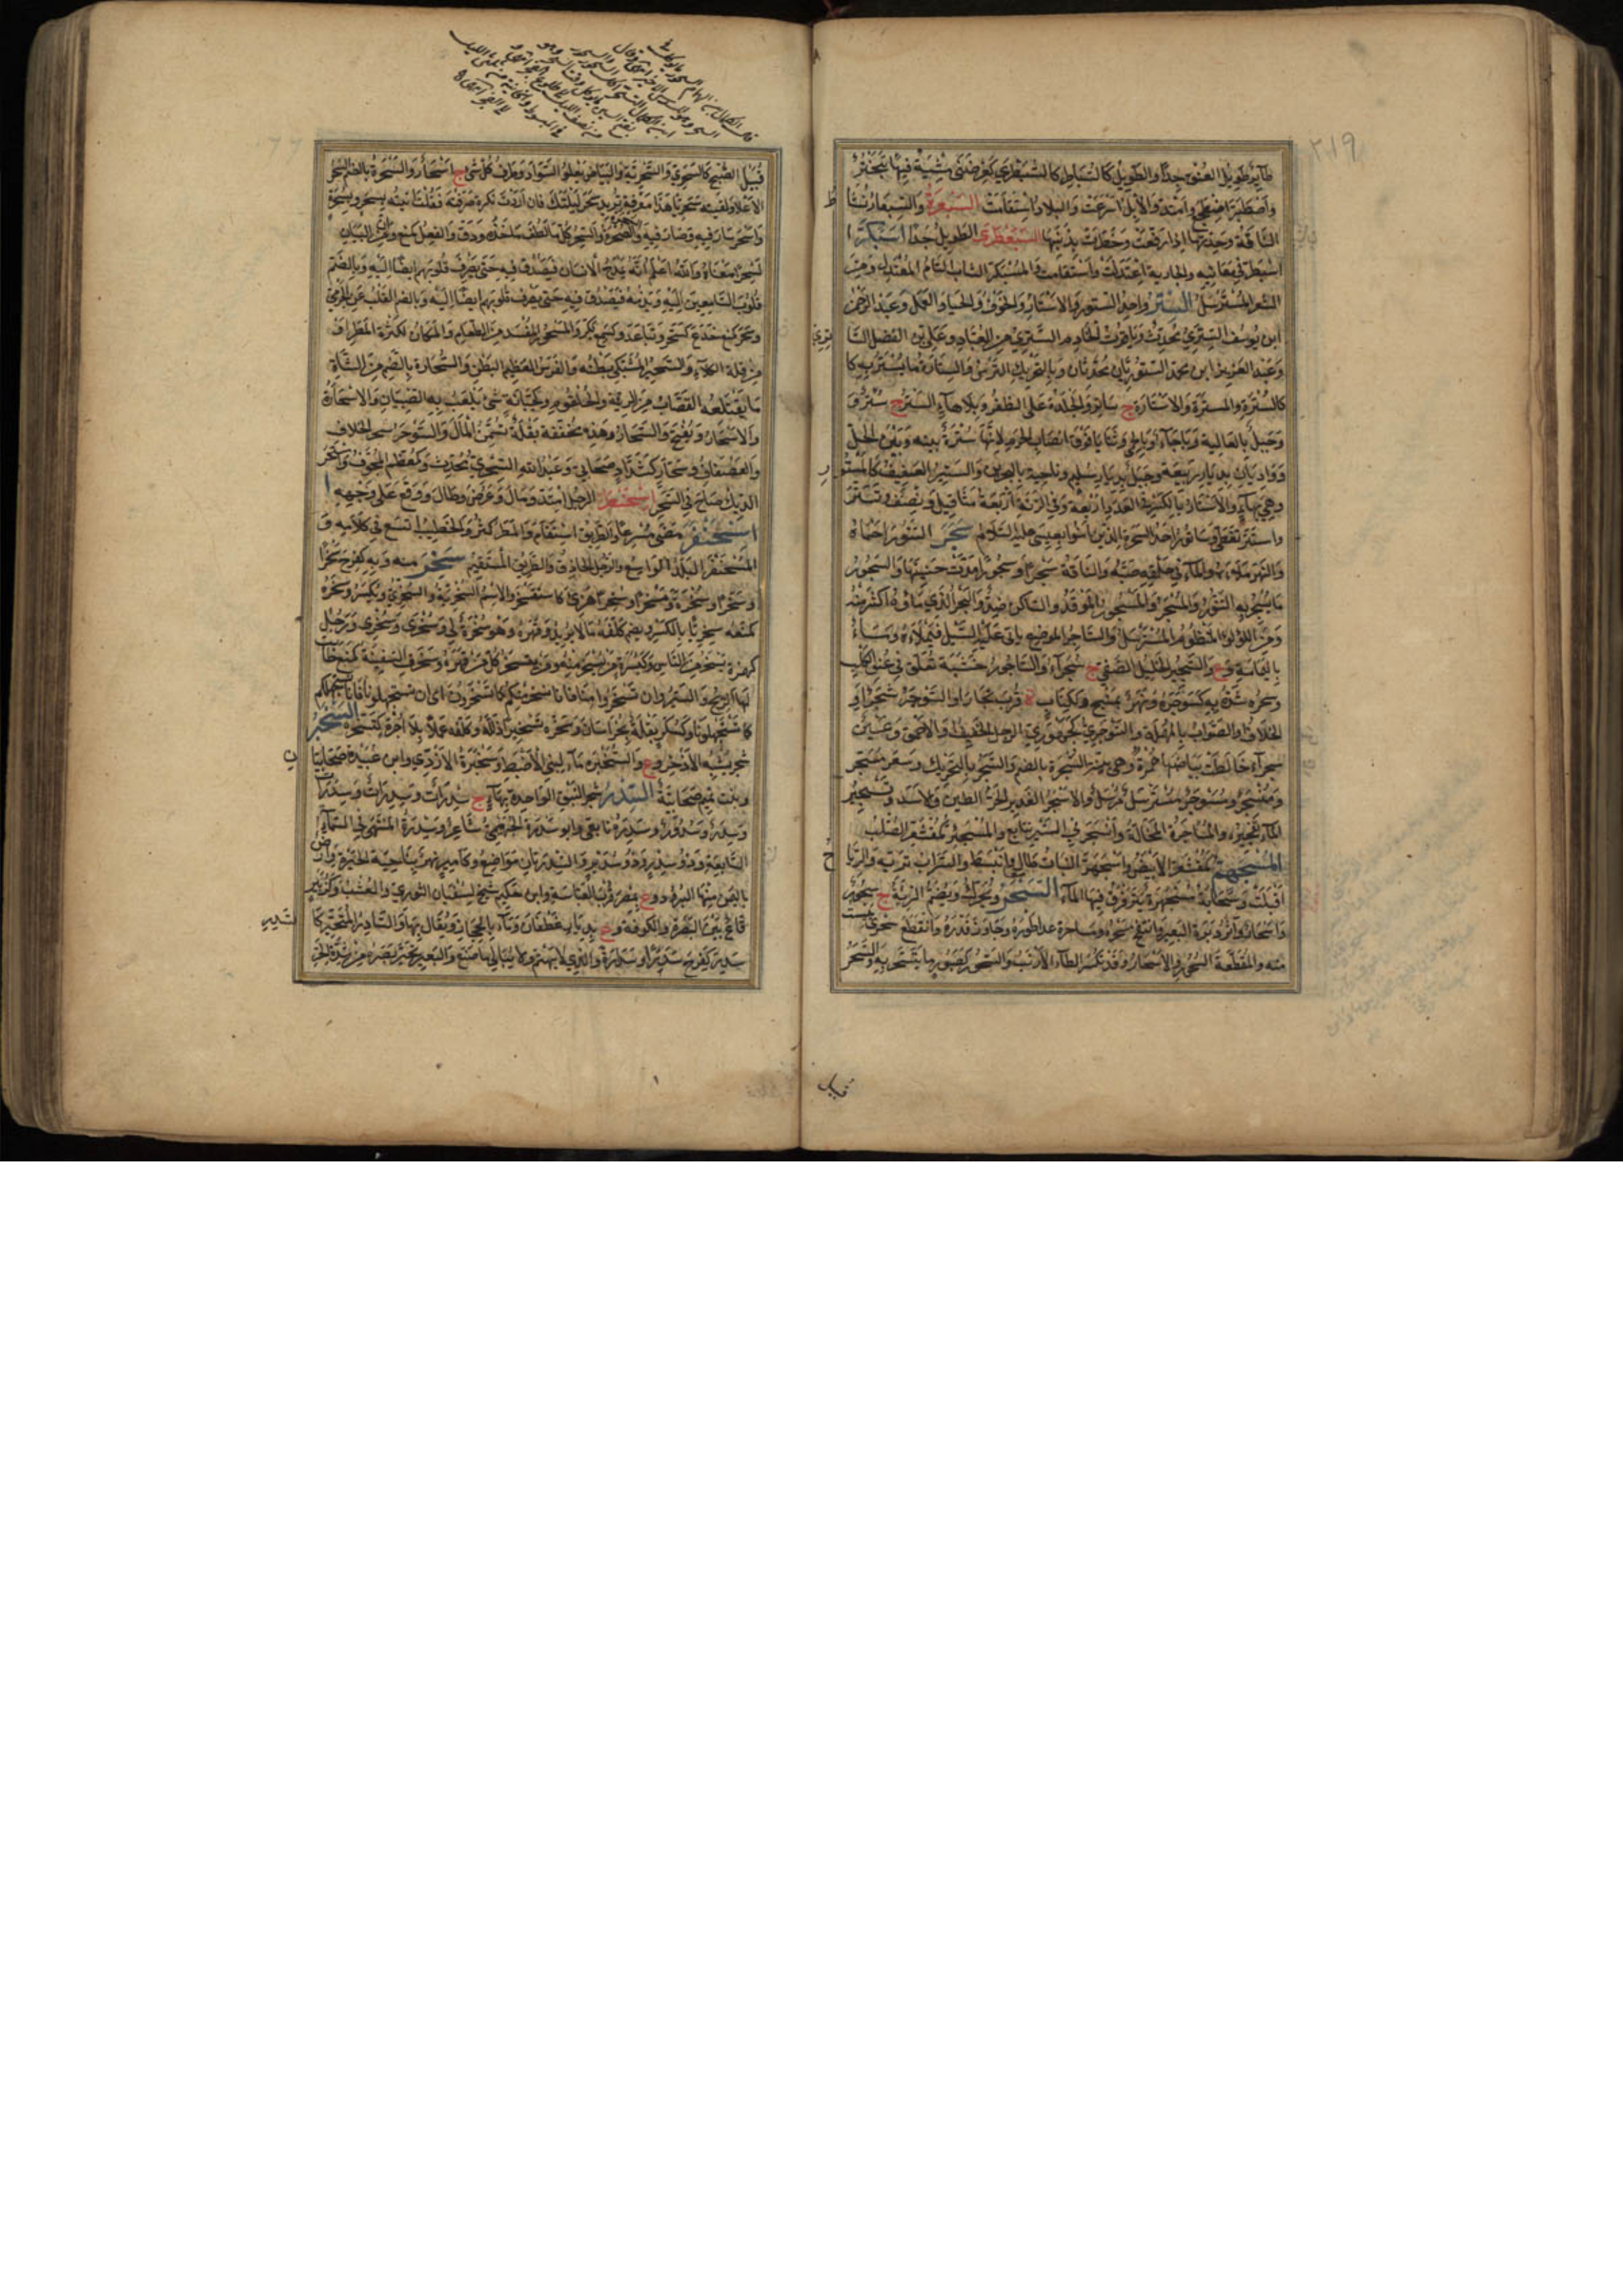 ٢١٩
طائر طويل العنق جدا والطويل كالسباطر كالسبطري كعرضني مشية فيها تبختر
واسبطر اضطجع وامتد والابل اسرعت والبلاد استقامت السبعرة والسبعار نشاط
الناقة وحدتها اذا رفعت وخطرت بذنبها السبعطرى الطويل جدا اسبكر
اسبطر في معانيه والجارية اعتدلت واستقامت والمسبكر الشاب التام المعتدل ومن
الشعر المسترسل الستر واحد الستور والاستار والخوف والحياء والعمل وعبد الرحمن
ابن يوسف الستري محدث وياقوت الخادم الستري من العباد وعلي بن الفضل
وعبد العزيز ابن محمد الستوريان محدثان وبالتحريك الترس والستارة ما يستتر به
كالسترة والمستر والاستارة ج ستائر والجلدة على الظفر وبلا هاء الستر ج ستر و
وجبل بالعالية وباجأ وبالحمى وثنايا فوق انصاب الحرم لانها سترة بينه وبين الحل
وواديان بديار ربيعة وجبل بديار سليم وناحية بالبحرين والستير العفيف كالمستور
وهي بهاء والاستار بالكسر في العدد اربعة وفي الزنة اربعة مثاقيل ونصف وتستر
واستتر تغطى وساتور احد السحرة الذين آمنوا بموسى عليه السلام سجر التنور احماه
والنهر ملأه والماء في حلقه صبه والناقة سجرا وسجورا مدت حنينها والسجور
ما يسجر به التنور والمسجر والمسجور الموقد والساكن ضد والبحر الذي ماؤه اكثر منه
ومن اللؤلؤ المنظوم المسترسل والساجر الموضع ياتي عليه السيل فيملأه وماء
باليمامة و ع والسجير الخليل الصفي ج سجراء والساجور خشبة تعلق في عنق الكلب
وسجره شده به كسوجره ونهر بمنبج وككتاب ة قرب بخارا والسوجر شجر او
الخلاف او الصواب بالمهملة والسوجري كجوهري الرجل الخفيف او الاحمق وعين
سجراء خالطت بياضها حمرة وهي بينة السجرة بالضم والسجر بالتحريك وشعر منسجر
ومسجر وسوجر مسترسل مرسل والاسجر الغدير الحر الطين والاسد وتسجير
الماء تفجيره والمساجرة المخالة وانسجر في السير تتابع والمسجئر كمقشعر الصلب
المسجهر كمقشعر الابيض واسجهر النبات طال وانبسط والسراب تريه والرياح
اقبلت وسحابة مسجهرة يترقرق فيها الماء السحر ويحرك ويضم الرئة ج سحور
واسحار واثر دبرة البعير وانتفخ سحره ومساحره عدا طوره وجاوز قدره وانقطع سحري يئست
منه والمقطعة السحور والاسحار وقد تكسر الطاء الارنب والسحور كصبور ما يتسحر به والسحر
قبيل

قبيل الصبح كالسحري والسحرية والبياض يعلو السواد وطرف كل شيء ج اسحار والسحرة بالضم السحر
الاعلى ولقيته سحرنا هذا معرفة تريد سحر ليلتك فان اردت نكرة صرفته فقلت اتيته بسحر وبسحرة
واسحر سار فيه وصار فيه والسحر كل ما لطف ماخذه ودق والفعل كمنع وان من البيان
لسحرا معناه والله اعلم انه يمدح الانسان فيصدق فيه حتى يصرف قلوبهم ايضا اليه وبالضم
قلوب السامعين اليه ويذمه فيصدق فيه حتى يصرف قلوبهم ايضا اليه وبالضم القلب عن الجرمي
وسحر كمنع خدع كسحر وتباعد وكسمع بكر والمسحور المفسد من الطعام والمكان لكثرة المطر او
من قلة الكلاء والسحير المشتكي بطنه والفرس العظيم البطن والسحارة بالضم من الشاة
ما يقتلعه القصاب من الرئة والحلقوم وكجبانة شيء يلعب به الصبيان والاسحارة
والاسحار ويفتح والسحار وهذه مخففة بقلة تسمن المال والسوحر شجر الخلاف
والصفصاف وسحار ككتان صحابي وعبد الله السحري محدث وكمعظم المجوف واستحر
الديك صاح في السحر اسحنطر الرجل امتد ومال وعرض وطال ووقع على وجهه
اسحنفر مضى مسرعا والطريق استقام والمطر كثر والخطيب اتسع في كلامه و
المسحنفر البلد الواسع والرجل الحاذق والطريق المستقيم سخر منه وبه كفرح سخرا
وسخرا وسخرة ومسخرا وسخرا هزئ كاستسخر والاسم السخرية والسخري ويكسر وسخره
كمنعه سخريا بالكسر ويضم كلفه ما لا يريد وقهره وهو سخرة لي وسخري وسخري ورجل
كهمزة يسخر من الناس وكبسرة من يسخر منه ومن يتسخر كل من قهره وسخرت السفينة كمنع طابت
لها الريح والسير وان تسخروا منا فانا نسخر منكم كما تسخرون اي ان تستجهلونا فانا نستجهلكم
كما تستجهلوننا وكسكر بقلة بخراسان وسخره تسخيرا ذلله وكلفه عملا بلا اجرة كتسخره السخبر
شجر يشبه الاذخر و ع والسخيبرة ماء لبني الاضبط وسخبرة الازدي وابن عبيدة صحابيان
وبنت تميم صحابية السدر شجر النبق الواحدة بهاء ج سدرات وسدرات وسدرات
وسدر وسدور وسدرة تابعي وابو سدرة الجهيمي شاعر وسدرة المنتهى في السماء
السابعة وذو سدر وذو سدير والسدرتان مواضع وكامير نهر بناحية الحيرة وارض
باليمن منها البرود و ع بمصر قرب العباسية وابن حكيم شيخ لسفيان الثوري والعشب وكزبير
قاع بين البصرة والكوفة و ع بديار غطفان وماء بالحجاز ويقال بهاء والسادر المتحير كا
سدر كفرح سدرا وسدارة والذي لا يهتم ولا يبالي ما صنع والبعير تحير بصره من شدة الحر